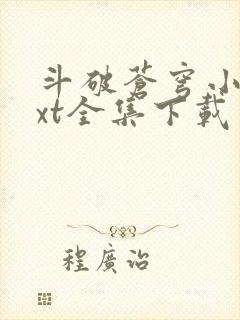 斗破蒼穹小
xt全集下載
程廣治